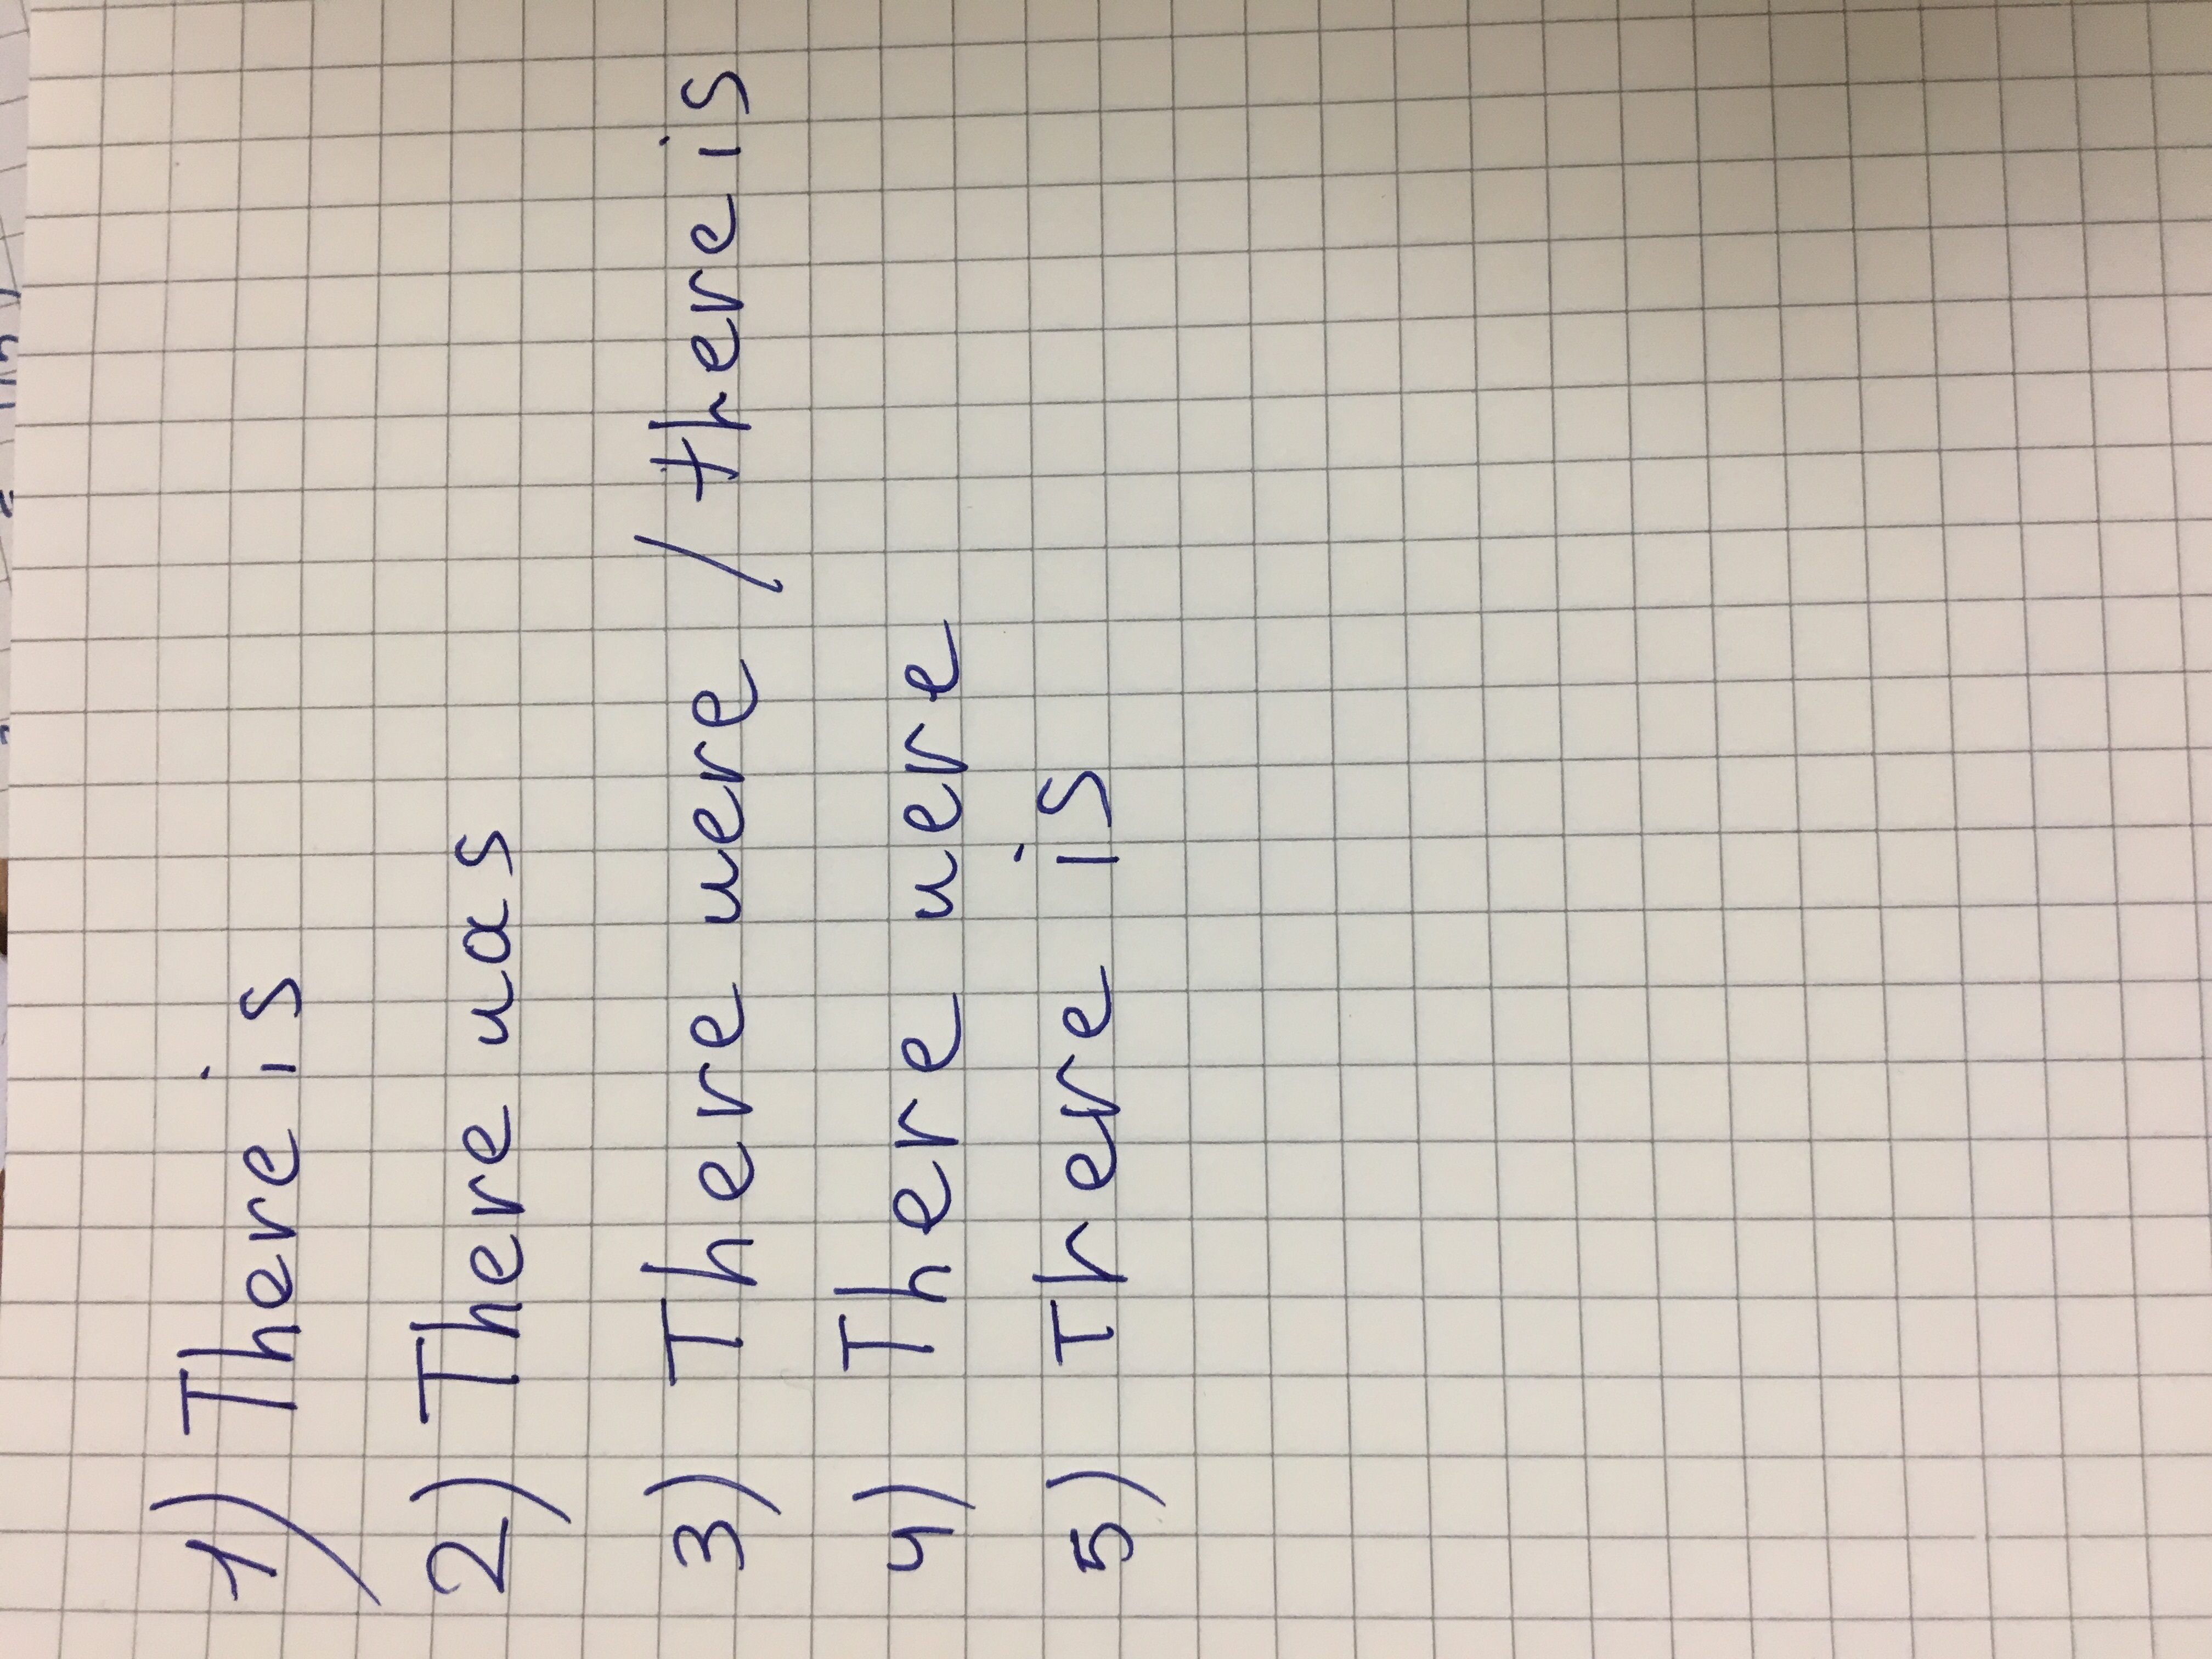 1) There is
2) There was
3) There were / there is
4) There were
5) There is